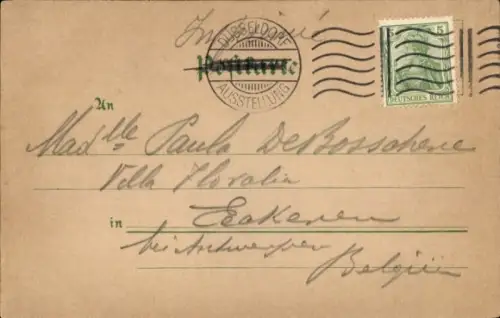 Imprimé
DÜSSELDORF
AUSSTELLUNG
5
DEUTSCHES REICH
Postkarte
An
Madlle Paula DeBosschere
Villa Floralia
in Eeckeren
bei Antwerpen
Belgien